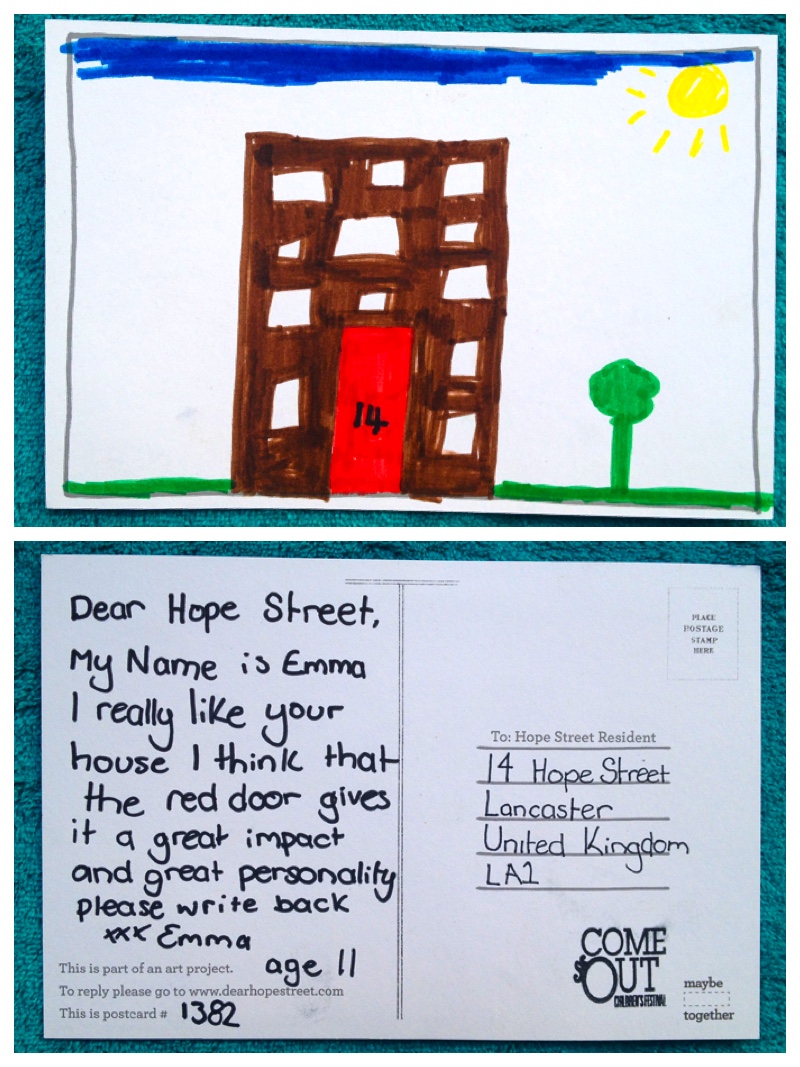 14
Dear Hope Street,
My Name is Emma
I really like your
house I think that
the red door gives
it a great impact
and great personality
please write back
xxx Emma
age 11
This is part of an art project.
To reply please go to www.dearhopestreet.com
This is postcard # 1382
PLACE
POSTAGE
STAMP
HERE
To: Hope Street Resident
14 Hope Street
Lancaster
United Kingdom
LA1
COME
OUT
CHILDREN'S FESTIVAL
maybe
together